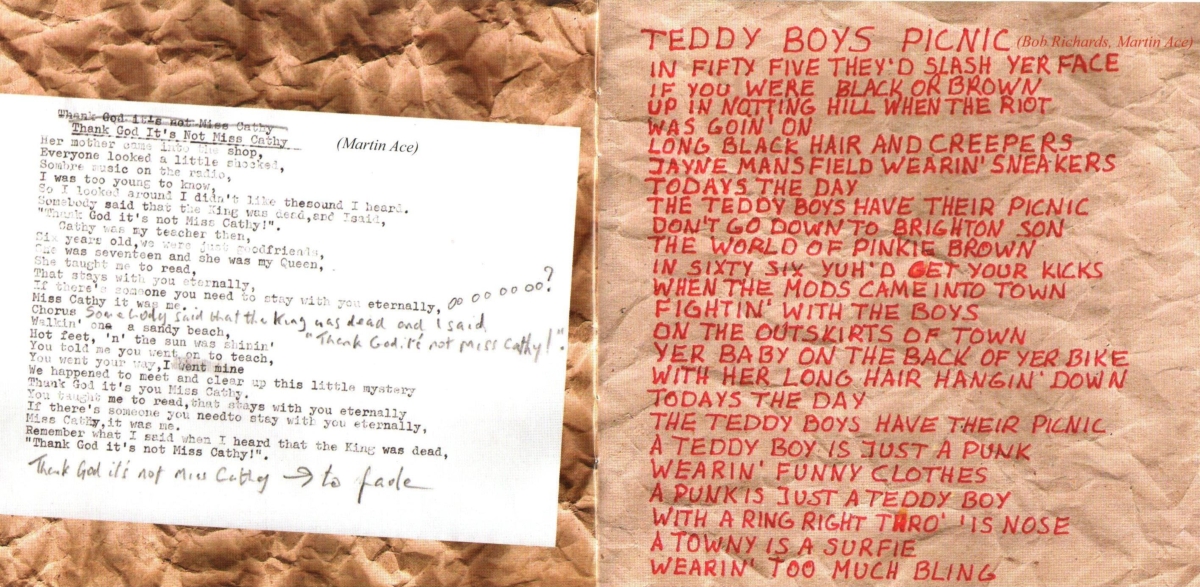 Thank God it's not Miss Cathy
Thank God It's Not Miss Cathy
(Martin Ace)
Her mother came into the shop,
Everyone looked a little shocked,
Sombre music on the radio,
I was too young to know,
So I looked around I didn't like thesound I heard.
Somebody said that the King was dead,and Isaid,
"Thank God it's not Miss Cathy!".
Cathy was my teacher then,
Six years old,we were just goodfriends,
She was seventeen and she was my Queen,
She taught me to read,
That stays with you eternally,
If there's someone you need to stay with you eternally, oo oo oo oo oo?
Miss Cathy it was me.
Chorus Somebody said what the King was dead and I said
"Thank God it's not Miss Cathy!".
Walkin' one a sandy beach,
Hot feet, 'n' the sun was shinin'
You told me you went on to teach,
You went your way,I went mine
We happened to meet and clear up this little mystery
Thank God it's you Miss Cathy.
You taught me to read,that stays with you eternally
If there's someone you needto stay with you eternally,
Miss Cathy,it was me.
Remember what I said when I heard that the King was dead,
"Thank God it's not Miss Cathy!".
Thank God it's not Miss Cathy → to fade
TEDDY BOYS PICNIC (Bob Richards, Martin Ace)
IN FIFTY FIVE THEY'D SLASH YER FACE
IF YOU WERE BLACK OR BROWN
UP IN NOTTING HILL WHEN THE RIOT
WAS GOIN' ON
LONG BLACK HAIR AND CREEPERS
JAYNE MANSFIELD WEARIN' SNEAKERS
TODAYS THE DAY
THE TEDDY BOYS HAVE THEIR PICNIC
DON'T GO DOWN TO BRIGHTON SON
THE WORLD OF PINKIE BROWN
IN SIXTY SIX YUH'D GET YOUR KICKS
WHEN THE MODS CAME INTO TOWN
FIGHTIN' WITH THE BOYS
ON THE OUTSKIRTS OF TOWN
YER BABY ON THE BACK OF YER BIKE
WITH HER LONG HAIR HANGIN' DOWN
TODAYS THE DAY
THE TEDDY BOYS HAVE THEIR PICNIC.
A TEDDY BOY IS JUST A PUNK
WEARIN' FUNNY CLOTHES
A PUNK IS JUST A TEDDY BOY
WITH A RING RIGHT THRO' 'IS NOSE
A TOWNY IS A SURFIE
WEARIN' TOO MUCH BLING